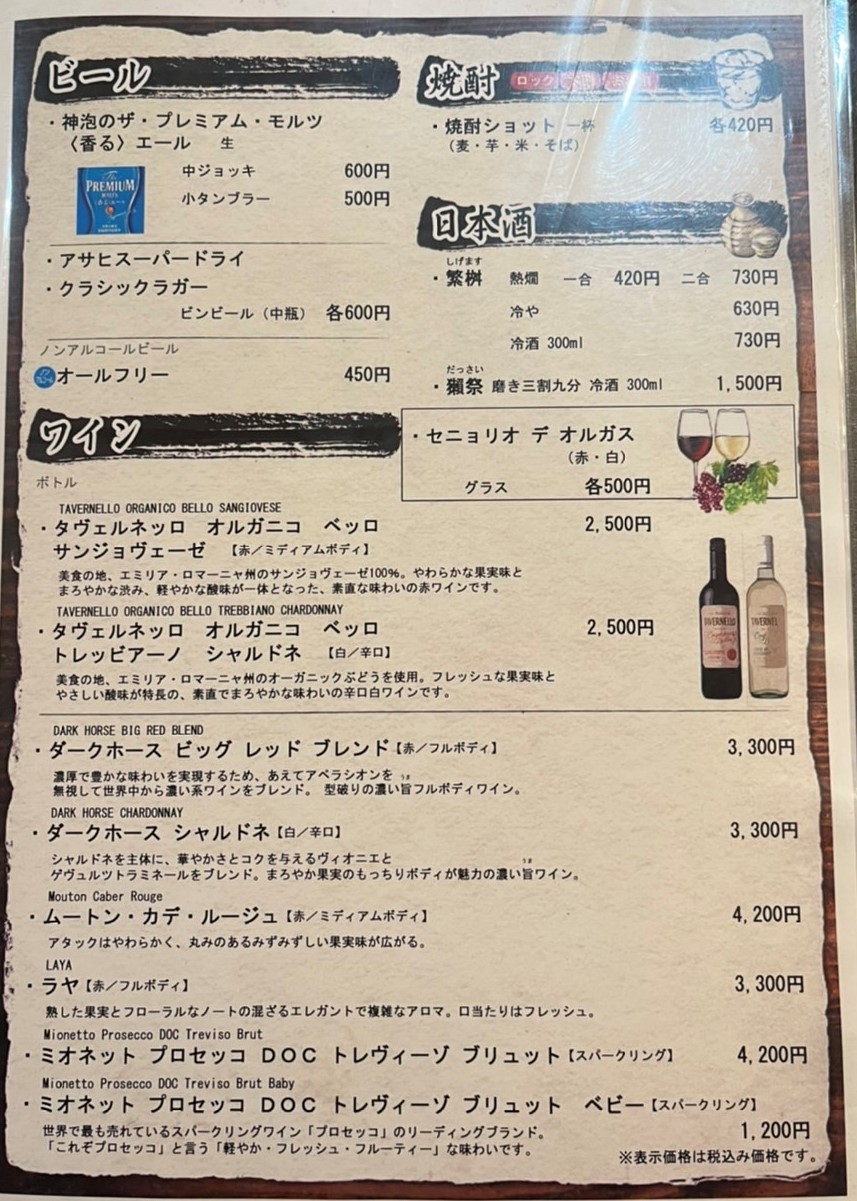 ビール
・神泡のザ・プレミアム・モルツ
〈香る〉エール 生
The
PREMIUM
MALT'S
中ジョッキ 600円
小タンブラー 500円
・アサヒスーパードライ
・クラシックラガー
ビンビール（中瓶） 各600円
ノンアルコールビール
オールフリー 450円
焼酎 ロック
・焼酎ショット 一杯 各420円
（麦・芋・米・そば）
日本酒
しげます
・繁桝 熱燗 一合 420円 二合 730円
冷や 630円
冷酒 300ml 730円
だっさい
・獺祭 磨き三割九分 冷酒 300ml 1,500円
ワイン
・セニョリオ デ オルガス
（赤・白）
グラス 各500円
ボトル
TAVERNELLO ORGANICO BELLO SANGIOVESE
・タヴェルネッロ オルガニコ ベッロ 2,500円
サンジョヴェーゼ 【赤／ミディアムボディ】
美食の地、エミリア・ロマーニャ州のサンジョヴェーゼ100%。やわらかな果実味と
まろやかな渋み、軽やかな酸味が一体となった、素直な味わいの赤ワインです。
TAVERNELLO ORGANICO BELLO TREBBIANO CHARDONNAY
・タヴェルネッロ オルガニコ ベッロ 2,500円
トレッビアーノ シャルドネ 【白／辛口】
美食の地、エミリア・ロマーニャ州のオーガニックぶどうを使用。フレッシュな果実味と
やさしい酸味が特長の、素直でまろやかな味わいの辛口白ワインです。
TAVERNELLO
TAVERNEL
DARK HORSE BIG RED BLEND
・ダークホース ビッグ レッド ブレンド【赤／フルボディ】 3,300円
濃厚で豊かな味わいを実現するため、あえてアペラシオンを
うま
無視して世界中から濃い系ワインをブレンド。 型破りの濃い旨フルボディワイン。
DARK HORSE CHARDONNAY
・ダークホース シャルドネ【白／辛口】 3,300円
シャルドネを主体に、華やかさとコクを与えるヴィオニエと
うま
ゲヴュルツトラミネールをブレンド。まろやか果実のもっちりボディが魅力の濃い旨ワイン。
Mouton Caber Rouge
・ムートン・カデ・ルージュ【赤／ミディアムボディ】 4,200円
アタックはやわらかく、丸みのあるみずみずしい果実味が広がる。
LAYA
・ラヤ【赤／フルボディ】 3,300円
熟した果実とフローラルなノートの混ざるエレガントで複雑なアロマ。口当たりはフレッシュ。
Mionetto Prosecco DOC Treviso Brut
・ミオネット プロセッコ ＤＯＣ トレヴィーゾ ブリュット【スパークリング】 4,200円
Mionetto Prosecco DOC Treviso Brut Baby
・ミオネット プロセッコ ＤＯＣ トレヴィーゾ ブリュット ベビー【スパークリング】
1,200円
世界で最も売れているスパークリングワイン「プロセッコ」のリーディングブランド。
「これぞプロセッコ」と言う「軽やか・フレッシュ・フルーティー」な味わいです。
※表示価格は税込み価格です。